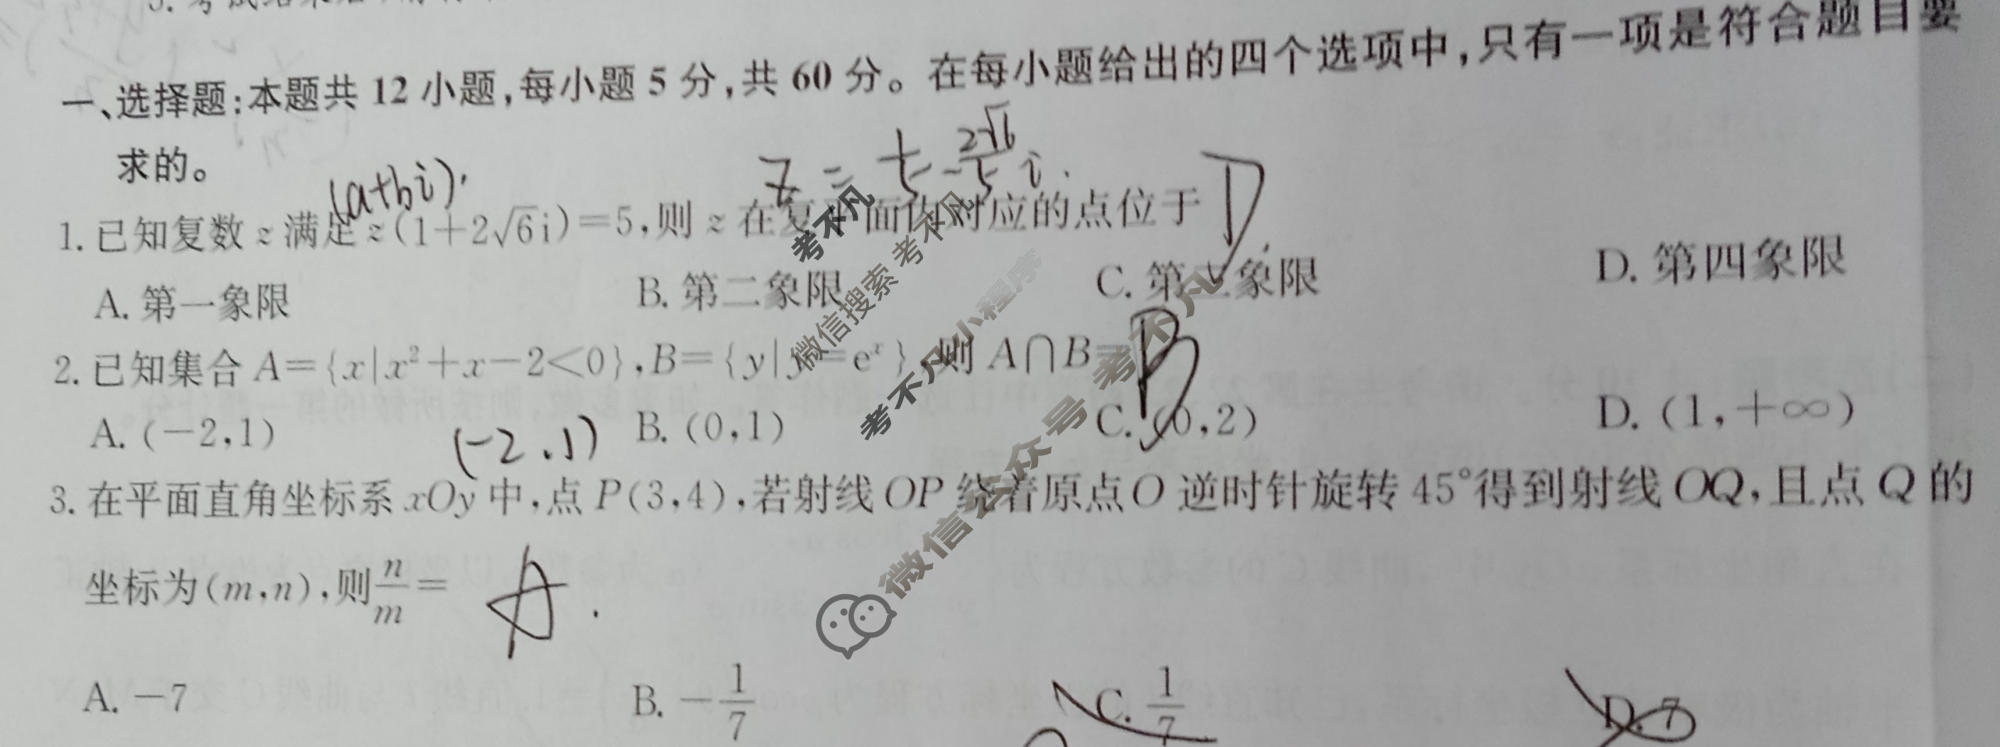 一、选择题:本题共 12 小题,每小题 5 分,共 60 分。在每小题给出的四个选项中,只有一项是符合题目要
求的。
(a+bi)·
z =
1.已知复数 z 满足 z(1+2√6i)=5,则 z 在复平面内对应的点位于 D
A. 第一象限 B. 第二象限 C. 第三象限 D. 第四象限
2.已知集合 A={x|x²+x-2<0},B={y|y=eˣ},则 A∩B= B
A. (-2,1) B. (0,1) C. (0,2) D. (1,+∞)
(-2,1)
3.在平面直角坐标系 xOy 中,点 P(3,4),若射线 OP 绕着原点 O 逆时针旋转 45°得到射线 OQ,且点 Q 的
坐标为(m,n),则n/m= A.
A. -7 B. -1/7 C. 1/7 D. 7
考不凡
微信搜索 考不凡
考不凡小程序
微信公众号 考不凡